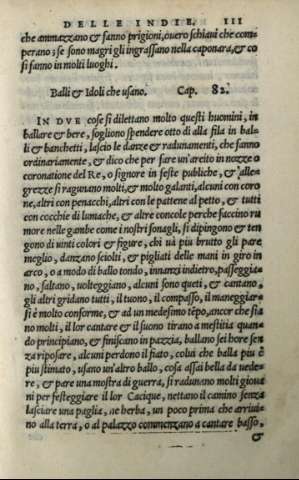 DELLE INDIE. III
che ammazzano & fanno prigioni, overo schiavi che com-
perano; se sono magri gli ingrassano nella caponara, & co
si fanno in molti luoghi.
Balli & Idoli che usano. Cap. 82.
IN DVE cose si dilettano molto questi huomini, in
ballare & bere, sogliono spendere otto dì alla fila in bal-
li & banchetti, lascio le danze & radunamenti, che fanno
ordinariamente, & dico che per fare un'areito in nozze o
coronatione del Re, o signore in feste publiche, & alle-
grezze si ragunano molti, & molto galanti, alcuni con coro
ne, altri con penacchi, altri con le pattene al petto, & tutti
con cocchie di lumache, & altre concole perche faccino ru
more nelle gambe come i nostri sonagli, si dipingono & ten
gono di uinti colori & figure, chi uà piu brutto gli pare
meglio, danzano sciolti, & pigliati delle mani in giro in
arco, o a modo di ballo tondo, innanzi indietro, passeggia
no, saltano, uolteggiano, alcuni sono queti, & cantano,
gli altri gridano tutti, il tuono, il compasso, il maneggiar
si è molto conforme, & ad un medesimo tẽpo, ancor che sia
no molti, il lor cantare & il suono tirano a mestitia quan
do principiano, & finiscano in pazzia, ballano sei hore sen
za riposare, alcuni perdono il fiato, colui che balla piu è
piu stimato, usano un'altro ballo, cosa assai bella da uede-
re, & pare una mostra di guerra, si radunano molti gioua
ni per festeggiare il lor Cacique, nettano il camino senza
lasciare una paglia, ne herba, un poco prima che arriui-
no alla terra, o al palazzo commenzano a cantare basso,
&